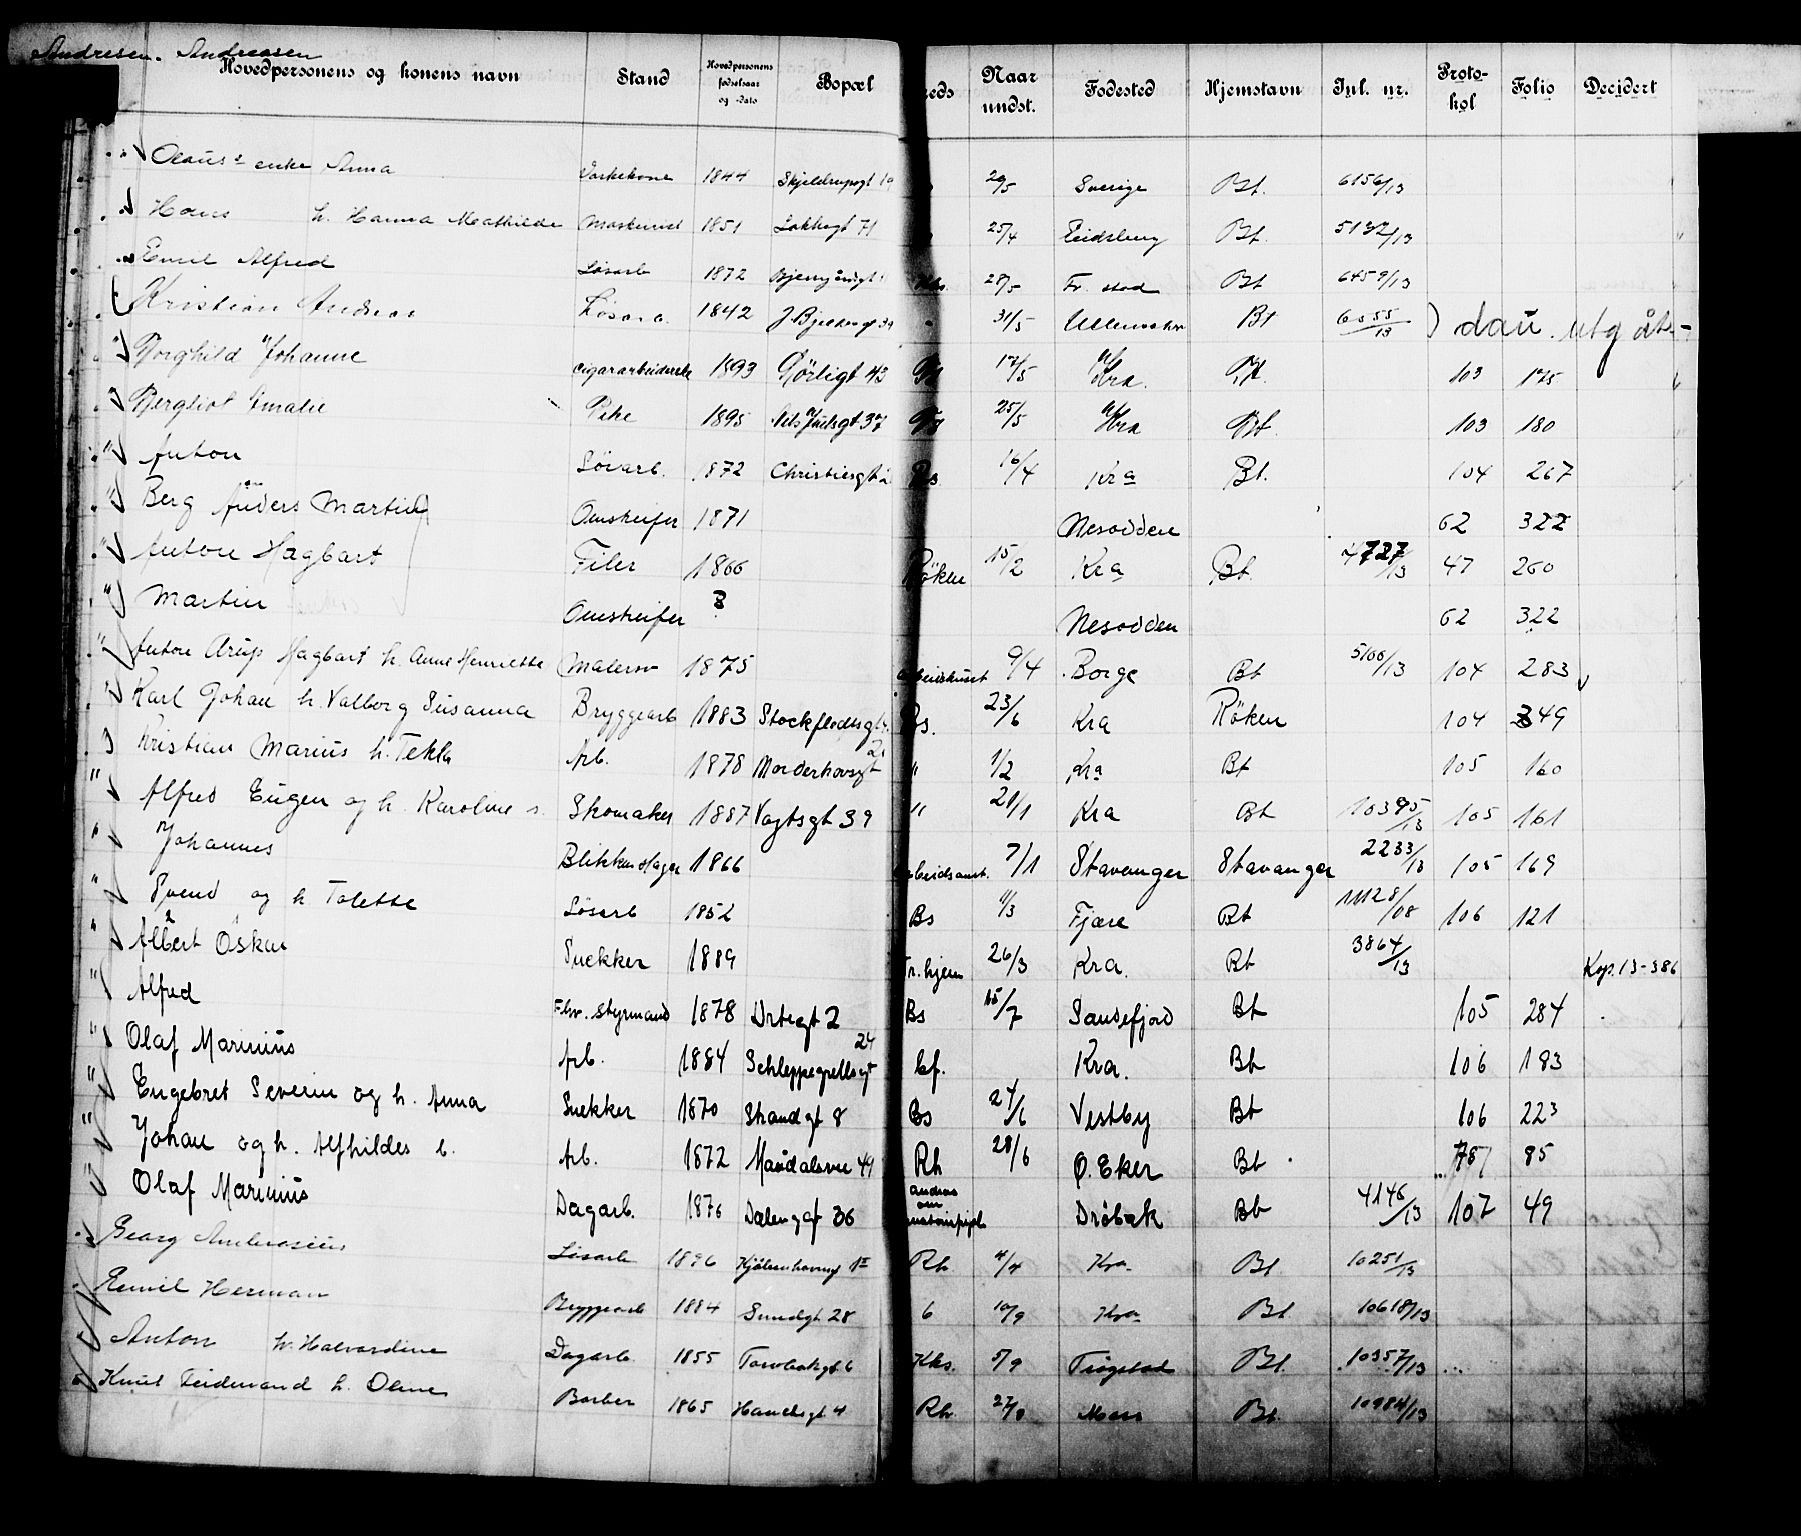 Andresen. Andreasen
Hovedpersonens og konens navn Stand Hovedpersonens fødselsaar og -dato Bopæl reds Naar undst. Fødested Hjemstavn Jnl. nr. Proto-kol Folio Decidert
" Olaus's enke Anna Vaskekone 1844 Skjeldrupsgt 19 29/5 Sverige Bt. 6156/13
Hans h. Hanna Mathilde Maskinist 1851 Lakkegt 71 25/4 Eidsberg Bt. 5132/13
Emil Alfred Løsarb 1872 28/5 Fr. stad Bt 6459/13
Kristian Andreas Løsarb. 1842 J. Bjelkesgt 39 " 31/5 Ullensaker Bt 6555/13 ) død. utg
" Borghild Johanne cigararbeiderske 1893 Gørbigt 43 12/5 Kra. Bt. 103 175
Bergliot Amalie Pike 1895 Nils Juelsgt 37 25/5 Kra Bt. 103 180
" Anton Løsarb. 1872 Christiesgt 2 Bs 16/4 Kra Bt. 104 267
" Berg Anders Martin Omstreifer 1871 Nesodden 62 322
" Anton Hagbart Filer 1866 Røken 15/2 Kra Bt. 4727/13 47 260
" Martin Omstreifer ? Nesodden 62 322
" Anton Arup Hagbart h. Anne Henriette Malersv 1875 arbeidshuset 9/4 Borge Bt 5166/13 104 283
" Karl Johan h. Valborg Susanna Bryggearb 1883 Stockflethsgt Bs. 23/6 Kra Røken 104 349
Kristian Marius h. Tekla Arb. 1878 Marderhovsgt 21 " 1/2 Kra Bt 105 160
" Alfred Eugen og h. Karoline s. Skomaker 1887 Vogtsgt 39 " 21/1 Kra Bt 10395/13 105 161
" Johannes Blikkenslager 1866 arbeidsanst. 7/1 Stavanger Stavanger 2233/13 105 169
" Svend og h Tolette Løsarb 1852 Bs 11/3 Fjære Bt 11128/08 106 121
" Albert Oskar Snekker 1889 Fr. hjem 26/3 Kra. Bt 3864/13 Kop. 13-386
" Alfred Fhv. styrmand 1878 Urtegt 2 Bs 15/7 Sandefjord Bt 105 284
" Olaf Marinius Arb. 1884 Schleppegrellsgt 24 bf. Kra. Bt 106 183
" Engebret Severin og h. Anna Snekker 1870 Strandgt 8 Bs 24/6 Vestby Bt 106 223
" Johan og h. Alfhildes b. Arb. 1872 Maridalsvn 49 Rh 28/6 Ø. Eker Bt 787 85
" Olaf Marinius Dagarb. 1876 Dælengat 36 andras om Drøbak Bt 4146/13 107 49
Georg Ambrosius Løsarb 1896 Rh. 4/4 Kra Bt 10251/13
Emil Herman Bryggearb 1884 Smedgt 28 6 10/9 Kra Bt. 10618/13
Anton h. Halvardine Dagarb. 1855 Torvbakgt 6 Kks. 5/9 Trøgstad Bt. 10357/13
Knut Ferdinand h. Oline Barber 1865 Hauchsgt 4 Rh. 27/9 Moss Bt. 10984/13